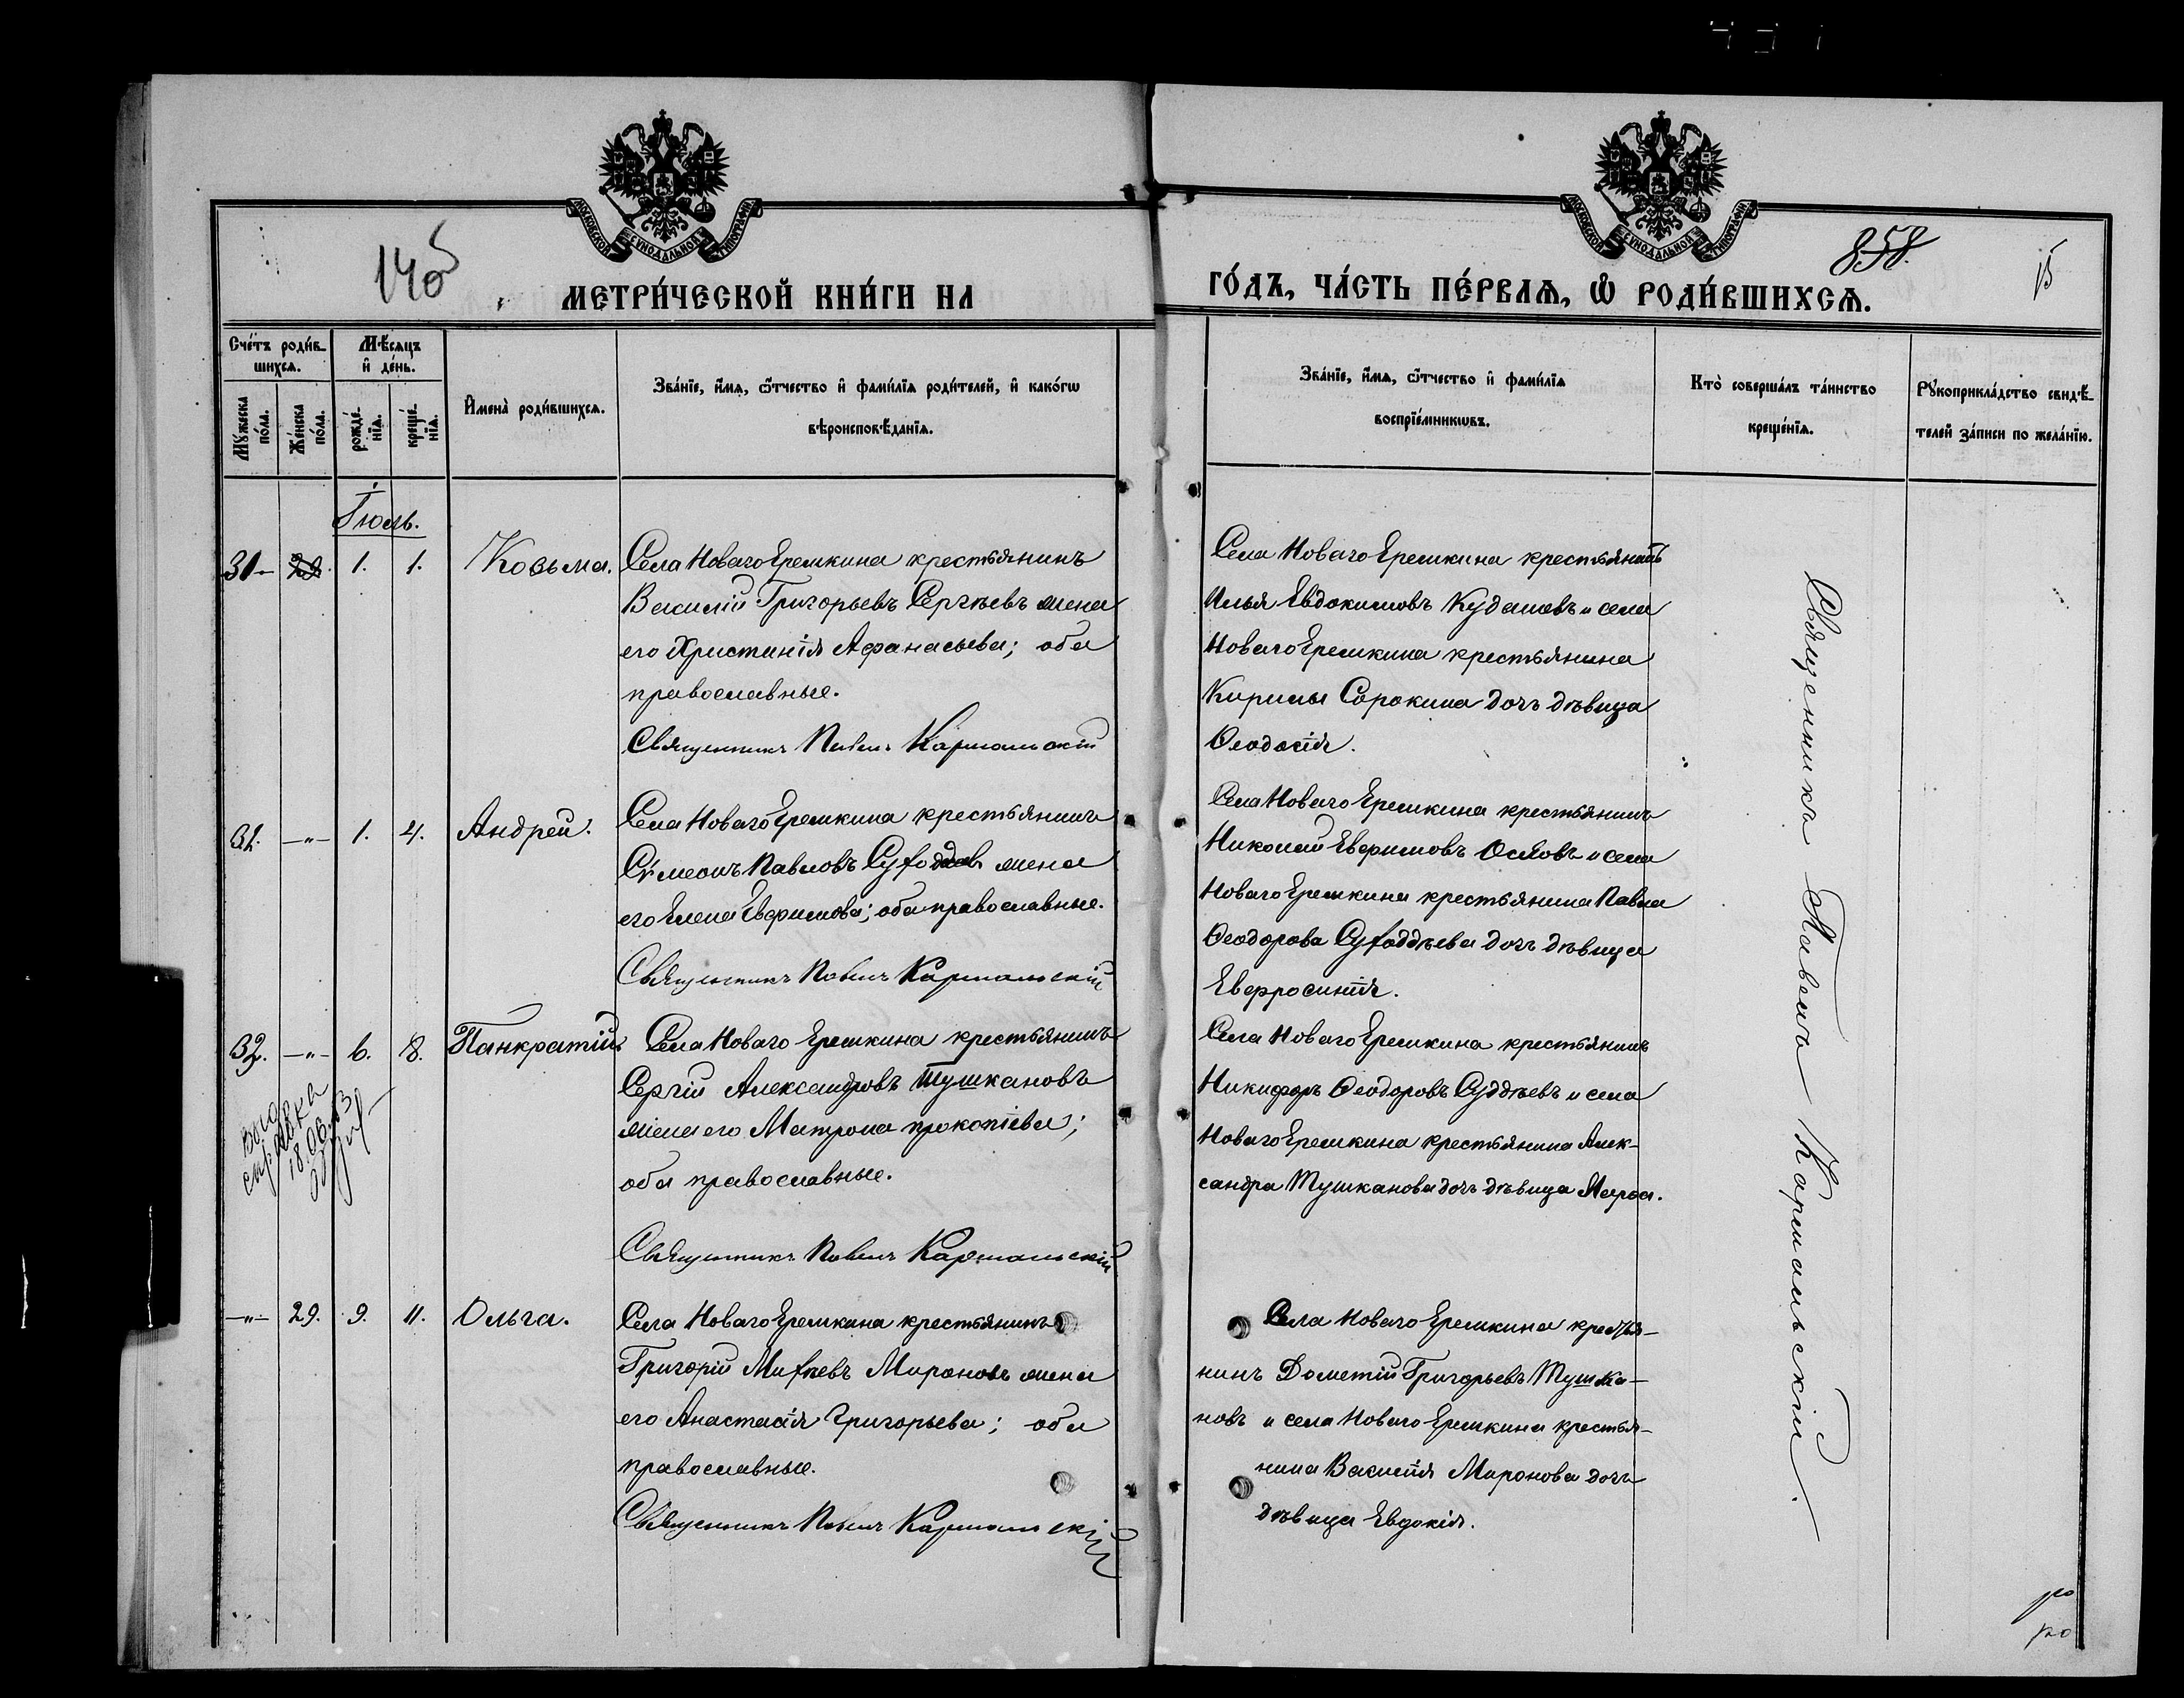 МОСКОВСКОЙ СУНОДАЛЬНОЙ ТИПОГРАФИИ
МОСКОВСКОЙ СУНОДАЛЬНОЙ ТИПОГРАФИИ
858.
МЕТРИ́ЧЕСКОЙ КНИ́ГИ НА
ГО́ДЪ, ЧА́СТЬ ПЕ́РВАѦ, Ѡ РОДИ́ВШИХСѦ.
Сче́тъ роди́в-
шихсѧ.
Мѣ́сѧцъ
и҆ де́нь.
Мꙋ́жеска
по́ла.
Же́нска
по́ла.
рожде́-
нїѧ.
креще́-
нїѧ.
И҆мена̀ роди́вшихсѧ.
Зва́нїе, и҆́мѧ, ѻ҆́тчество и҆ фами́лїѧ роди́телей, и҆ како́гѡ
вѣроисповѣ́данїѧ.
Зва́нїе, и҆́мѧ, ѻ҆́тчество и҆ фами́лїѧ
воспрїе́мникѡвъ.
Кто̀ соверша́лъ та́инство
креще́нїѧ.
Рꙋкоприкла́дство свидѣ́-
телей за́писи по жела́нїю.
Іюль.
1. 1. Козьма.
Села Новаго Еремкина крестьянинъ
Василій Григорьевъ Сергѣевъ жена
его Христинія Афанасьева; оба
православные.
Священникъ Павелъ Кармальскій
Села Новаго Еремкина крестьянинъ
Илья Евдокимовъ Кудашовъ и села
Новаго Еремкина крестьянина
Кирилы Сорокина дочь дѣвица
Ѳеодосія.
31. —"— 1. 4. Андрей.
Села Новаго Еремкина крестьянинъ
Сѵмеонъ Павловъ жена
его Елена Евфимова; оба православные.
Священникъ Павелъ Кармальскій
Села Новаго Еремкина крестьянинъ
Николай Евфимовъ и села
Новаго Еремкина крестьянина Павла
Ѳеодорова дочь дѣвица
Евфросинія.
32. —"— 6. 8. Панкратій
Села Новаго Еремкина крестьянинъ
Сергій Александровъ Тушкановъ
жена его Матрона Прокопіева;
оба православные.
Священникъ Павелъ Кармальскій
Села Новаго Еремкина крестьянинъ
Никифоръ Ѳеодоровъ и села
Новаго Еремкина крестьянина Алек-
сандра Тушканова дочь дѣвица
справка
—"— 29. 9. 11. Ольга.
Села Новаго Еремкина крестьянинъ
Григорій Мироновъ жена
его Анастасія Григорьева; оба
православные.
Священникъ Павелъ Кармальскій
Села Новаго Еремкина крестья-
нинъ Дометій Григорьевъ Тушка-
новъ и села Новаго Еремкина крестья-
нина Василія Миронова дочь
дѣвица Евдокія.
Священникъ Павелъ Кармальскій.